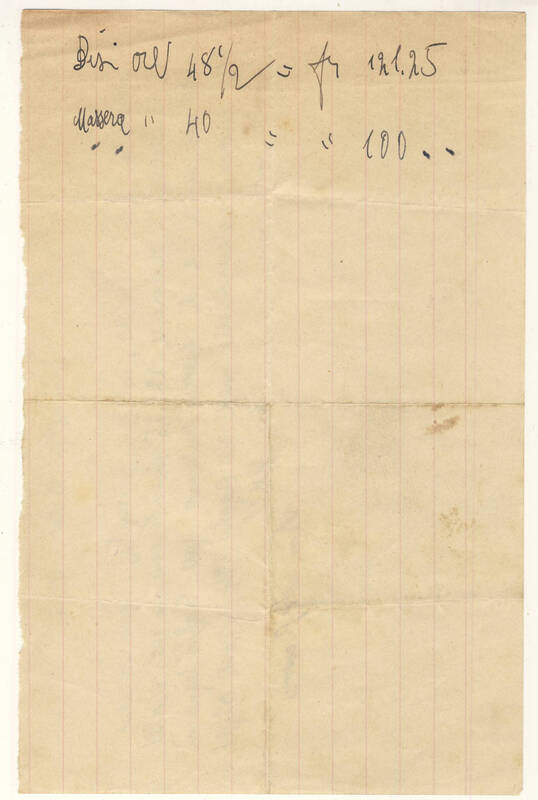 Bisi ore 48 1/2 = fr 121.25
Massera " 40 = " 100..